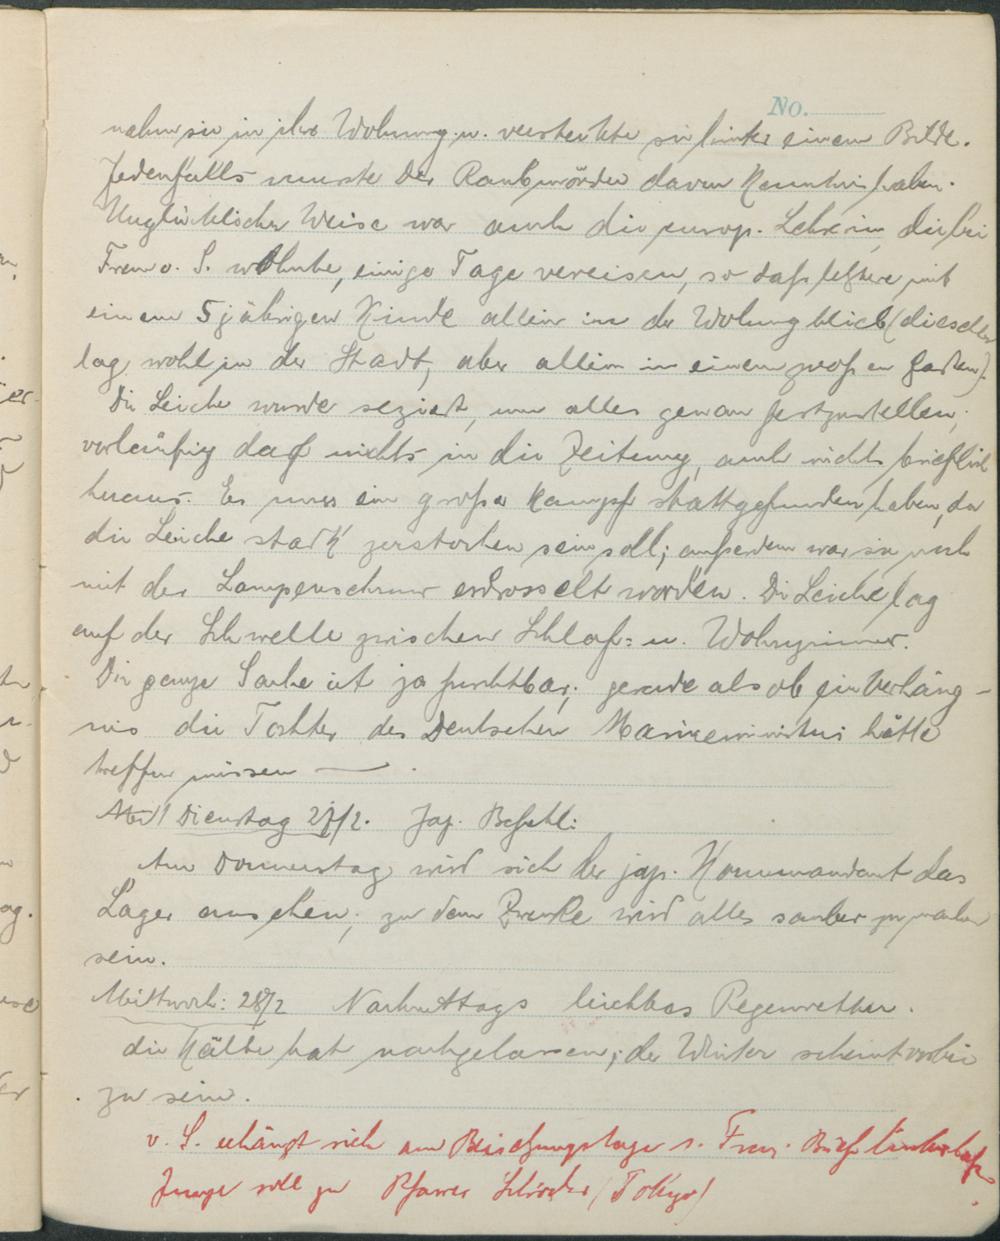 No.
nahm sie in ihre Wohnung u. versteckte sie hinter einem Bilde.
Jedenfalls musste der Raubmörder davon Kenntnis haben.
Unglücklicher Weise war auch die europ. Lehrerin, die bei
Frau v. S. wohnte, einige Tage vereisen, so daß letztere mit
einem 5 jährigen Kinde allein in der Wohnung blieb (dieselbe
lag wohl in der Stadt, aber allein in einem großen Garten).
Die Leiche wurde seziert, um alles genau festzustellen;
vorläufig darf nichts in die Zeitung, auch nichts brieflich
heraus. Es muss ein großer Kampf stattgefunden haben, da
die Leiche stark zerstochen sein soll; außerdem war sie noch
mit der Lampenschnur erdrosselt worden. Die Leiche lag
auf der Schwelle zwischen Schlaf= u. Wohnzimmer.
Die ganze Sache ist ja furchtbar; gerade als ob ein Verhäng-
nis die Tochter des Deutschen Marineministers hätte
treffen müssen —.
Dienstag 27/2. Jap. Befehl:
Am Donnerstag wird sich der jap. Kommandant das
Lager ansehen; zu dem Zwecke wird alles sauber zu machen
sein.
Mittwoch: 28/2 Nachmittags leichtes Regenwetter.
die Kälte hat nachgelassen; der Winter scheint vorbei
zu sein.
v. S. erhängt sich am Beisetzungstage s. Frau. Brief hinterlaß.
Junge soll zu Pfarrer Schröder (Tokyo)